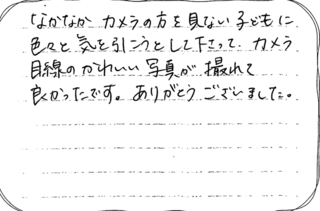 なかなか カメラの方を見ない子どもに
色々と気を引こうとして下さって、カメラ
目線のかわいい写真が撮れて
良かったです。ありがとうございました。